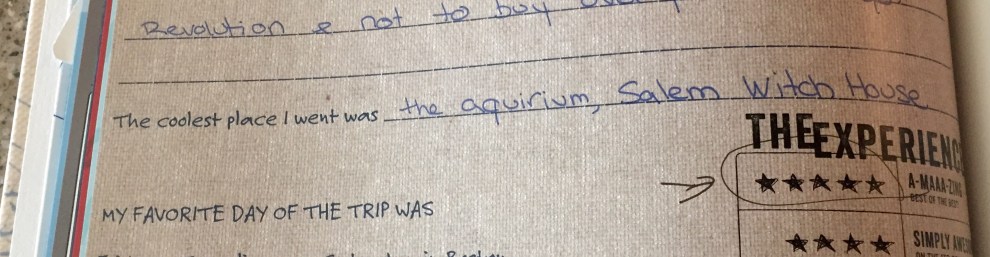 Revolution & not to buy
The coolest place I went was the aquirium, Salem Witch House
THE EXPERIENC
★★★★★ A-MAAA-ZIN
BEST OF THE BEST
MY FAVORITE DAY OF THE TRIP WAS
★★★★ SIMPLY AWE